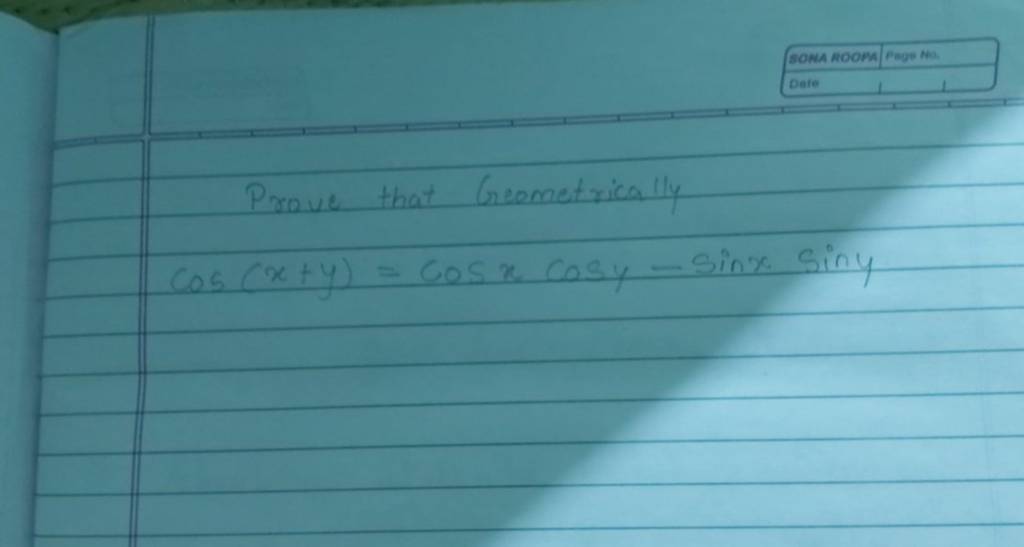 SONA ROOPA Page No.
Date
Prove that Geometrically
cos (x+y) = cos x cosy - sinx siny